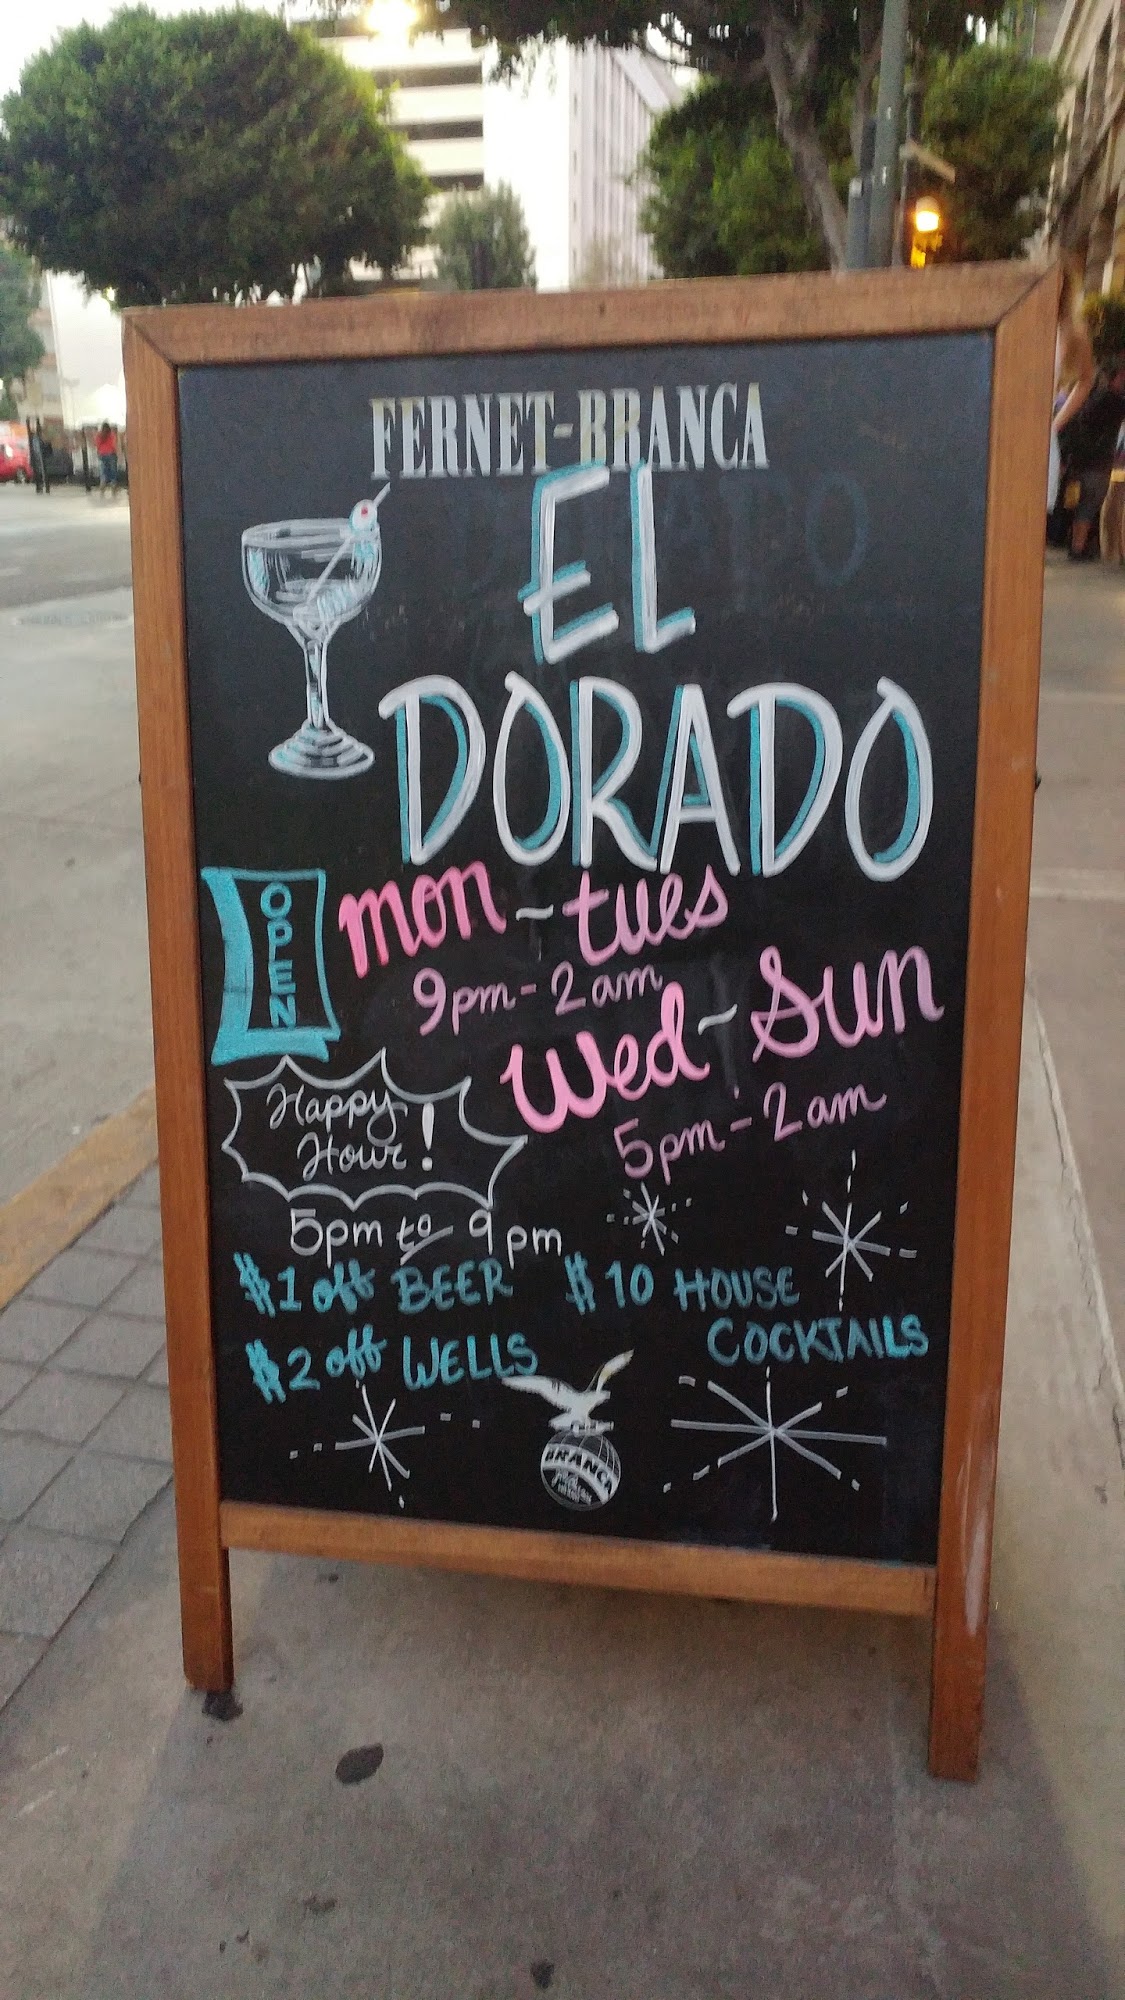 FERNET-BRANCA
EL
DORADO
OPEN
mon-tues
9pm-2am
Wed-Sun
5pm-2am
Happy
Hour!
5pm to 9pm
$1 off BEER
$2 off WELLS
$10 HOUSE
COCKTAILS
BRANCA